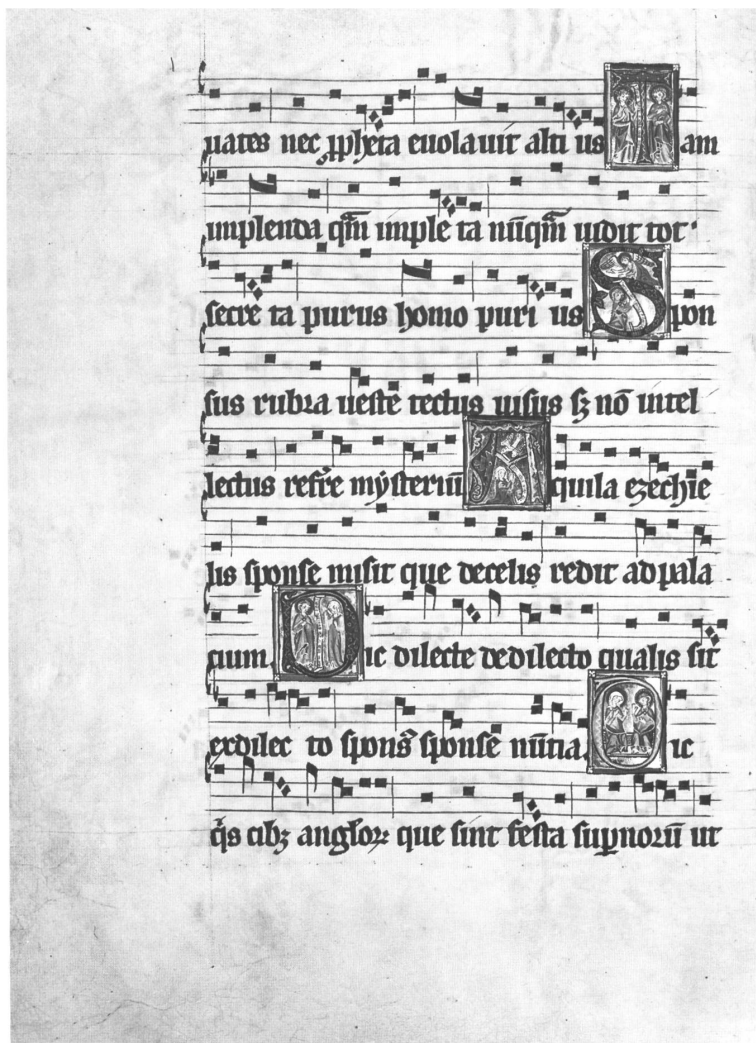 uates nec ꝓpheta euolauit alti us Tam
implenda qm̄ imple ta nūqm̄ uidit tot
secre ta purus homo puri us Spon
sus rubra ueste tectus uisus sꝫ nō intel
lectus refr̄e mysteriū Aquila ezechie
lis sponse misit que decelis redit ad pala
cium Dic dilecte dedilecto qualis sit
exdilec to sponsꝰ sponse nūtia Dic
qͥs cibꝫ angl̄oꝝ que sint festa suꝑnorū ut